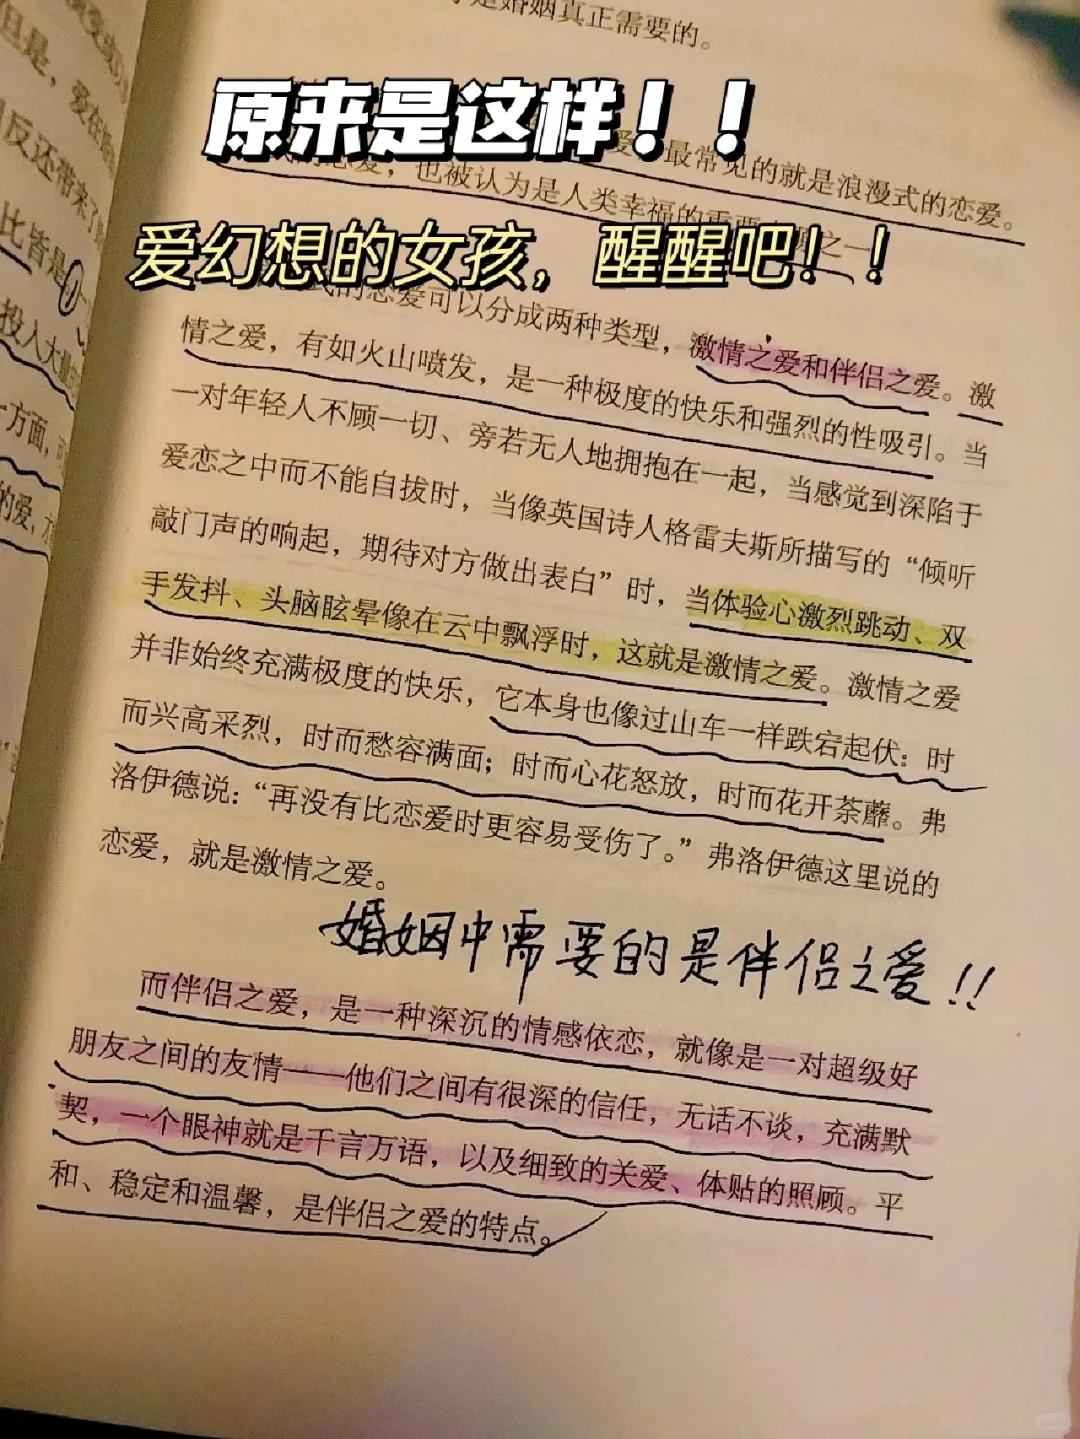 是婚姻真正需要的。
原来是这样！！
最常见的就是浪漫式的恋爱。
也被认为是人类幸福的
爱幻想的女孩，醒醒吧！！
的恋爱可以分成两种类型，激情之爱和伴侣之爱。激
情之爱，有如火山喷发，是一种极度的快乐和强烈的性吸引。当
一对年轻人不顾一切、旁若无人地拥抱在一起，当感觉到深陷于
爱恋之中而不能自拔时，当像英国诗人格雷夫斯所描写的“倾听
敲门声的响起，期待对方做出表白”时，当体验心激烈跳动、双
手发抖、头脑眩晕像在云中飘浮时，这就是激情之爱。激情之爱
并非始终充满极度的快乐，它本身也像过山车一样跌宕起伏：时
而兴高采烈，时而愁容满面；时而心花怒放，时而花开荼蘼。弗
洛伊德说：“再没有比恋爱时更容易受伤了。”弗洛伊德这里说的
恋爱，就是激情之爱。
婚姻中需要的是伴侣之爱!!
而伴侣之爱，是一种深沉的情感依恋，就像是一对超级好
朋友之间的友情——他们之间有很深的信任，无话不谈，充满默
契，一个眼神就是千言万语，以及细致的关爱、体贴的照顾。平
和、稳定和温馨，是伴侣之爱的特点。
但是，爱在
反还带来了
比皆是
①
投入大量
一方面，
的爱，